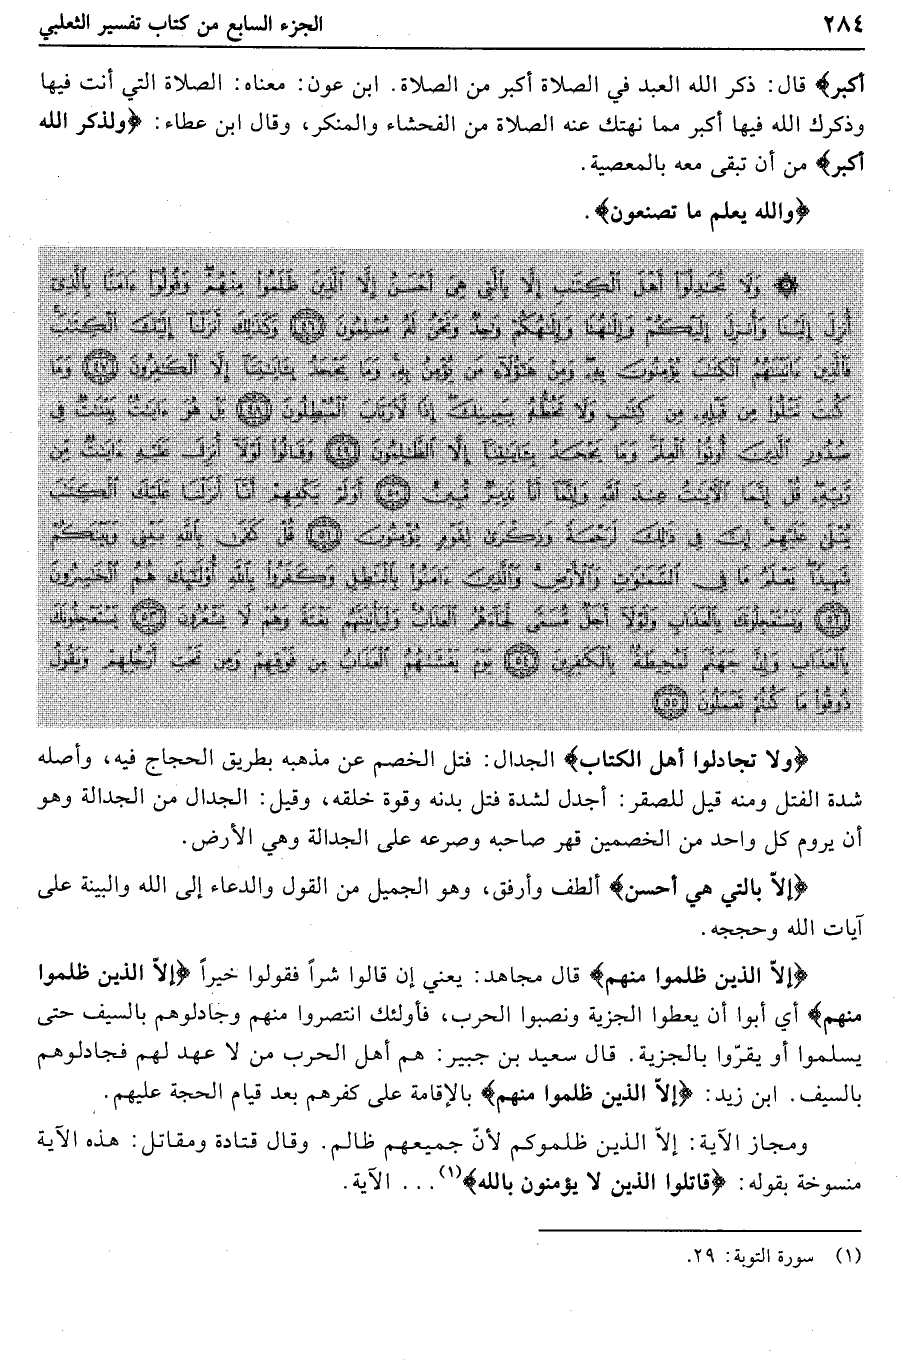 ٢٨٤ الجزء السابع من كتاب تفسير الثعلبي
أكبر﴾ قال: ذكر الله العبد في الصلاة أكبر من الصلاة. ابن عون: معناه: الصلاة التي أنت فيها
وذكرك الله فيها أكبر مما نهتك عنه الصلاة من الفحشاء والمنكر، وقال ابن عطاء: ﴿ولذكر الله
أكبر﴾ من أن تبقى معه بالمعصية.
﴿والله يعلم ما تصنعون﴾.
۞ وَلَا تُجَٰدِلُوٓا۟ أَهْلَ ٱلْكِتَٰبِ إِلَّا بِٱلَّتِى هِىَ أَحْسَنُ إِلَّا ٱلَّذِينَ ظَلَمُوا۟ مِنْهُمْ وَقُولُوٓا۟ ءَامَنَّا بِٱلَّذِىٓ
أُنزِلَ إِلَيْنَا وَأُنزِلَ إِلَيْكُمْ وَإِلَٰهُنَا وَإِلَٰهُكُمْ وَٰحِدٌ وَنَحْنُ لَهُۥ مُسْلِمُونَ ﴿٤٦﴾ وَكَذَٰلِكَ أَنزَلْنَآ إِلَيْكَ ٱلْكِتَٰبَ
فَٱلَّذِينَ ءَاتَيْنَٰهُمُ ٱلْكِتَٰبَ يُؤْمِنُونَ بِهِۦ وَمِنْ هَٰٓؤُلَآءِ مَن يُؤْمِنُ بِهِۦ وَمَا يَجْحَدُ بِـَٔايَٰتِنَآ إِلَّا ٱلْكَٰفِرُونَ ﴿٤٧﴾ وَمَا
كُنتَ تَتْلُوا۟ مِن قَبْلِهِۦ مِن كِتَٰبٍ وَلَا تَخُطُّهُۥ بِيَمِينِكَ إِذًا لَّٱرْتَابَ ٱلْمُبْطِلُونَ ﴿٤٨﴾ بَلْ هُوَ ءَايَٰتٌۢ بَيِّنَٰتٌ فِى
صُدُورِ ٱلَّذِينَ أُوتُوا۟ ٱلْعِلْمَ وَمَا يَجْحَدُ بِـَٔايَٰتِنَآ إِلَّا ٱلظَّٰلِمُونَ ﴿٤٩﴾ وَقَالُوا۟ لَوْلَآ أُنزِلَ عَلَيْهِ ءَايَٰتٌ مِّن
رَّبِّهِۦ قُلْ إِنَّمَا ٱلْءَايَٰتُ عِندَ ٱللَّهِ وَإِنَّمَآ أَنَا۠ نَذِيرٌ مُّبِينٌ ﴿٥٠﴾ أَوَلَمْ يَكْفِهِمْ أَنَّآ أَنزَلْنَا عَلَيْكَ ٱلْكِتَٰبَ
يُتْلَىٰ عَلَيْهِمْ إِنَّ فِى ذَٰلِكَ لَرَحْمَةً وَذِكْرَىٰ لِقَوْمٍ يُؤْمِنُونَ ﴿٥١﴾ قُلْ كَفَىٰ بِٱللَّهِ بَيْنِى وَبَيْنَكُمْ
شَهِيدًا يَعْلَمُ مَا فِى ٱلسَّمَٰوَٰتِ وَٱلْأَرْضِ وَٱلَّذِينَ ءَامَنُوا۟ بِٱلْبَٰطِلِ وَكَفَرُوا۟ بِٱللَّهِ أُو۟لَٰٓئِكَ هُمُ ٱلْخَٰسِرُونَ
﴿٥٢﴾ وَيَسْتَعْجِلُونَكَ بِٱلْعَذَابِ وَلَوْلَآ أَجَلٌ مُّسَمًّى لَّجَآءَهُمُ ٱلْعَذَابُ وَلَيَأْتِيَنَّهُم بَغْتَةً وَهُمْ لَا يَشْعُرُونَ ﴿٥٣﴾ يَسْتَعْجِلُونَكَ
بِٱلْعَذَابِ وَإِنَّ جَهَنَّمَ لَمُحِيطَةٌۢ بِٱلْكَٰفِرِينَ ﴿٥٤﴾ يَوْمَ يَغْشَىٰهُمُ ٱلْعَذَابُ مِن فَوْقِهِمْ وَمِن تَحْتِ أَرْجُلِهِمْ وَيَقُولُ
ذُوقُوا۟ مَا كُنتُمْ تَعْمَلُونَ ﴿٥٥﴾
﴿ولا تجادلوا أهل الكتاب﴾ الجدال: فتل الخصم عن مذهبه بطريق الحجاج فيه، وأصله
شدة الفتل ومنه قيل للصقر: أجدل لشدة فتل بدنه وقوة خلقه، وقيل: الجدال من الجدالة وهو
أن يروم كل واحد من الخصمين قهر صاحبه وصرعه على الجدالة وهي الأرض.
﴿إلاّ بالتي هي أحسن﴾ ألطف وأرفق، وهو الجميل من القول والدعاء إلى الله والبينة على
آيات الله وحججه.
﴿إلاّ الذين ظلموا منهم﴾ قال مجاهد: يعني إن قالوا شراً فقولوا خيراً ﴿إلاّ الذين ظلموا
منهم﴾ أي أبوا أن يعطوا الجزية ونصبوا الحرب، فأولئك انتصروا منهم وجادلوهم بالسيف حتى
يسلموا أو يقرّوا بالجزية. قال سعيد بن جبير: هم أهل الحرب من لا عهد لهم فجادلوهم
بالسيف. ابن زيد: ﴿إلاّ الذين ظلموا منهم﴾ بالإقامة على كفرهم بعد قيام الحجة عليهم.
ومجاز الآية: إلاّ الذين ظلموكم لأنّ جميعهم ظالم. وقال قتادة ومقاتل: هذه الآية
منسوخة بقوله: ﴿قاتلوا الذين لا يؤمنون بالله﴾(١)... الآية.
(١) سورة التوبة: ٢٩.